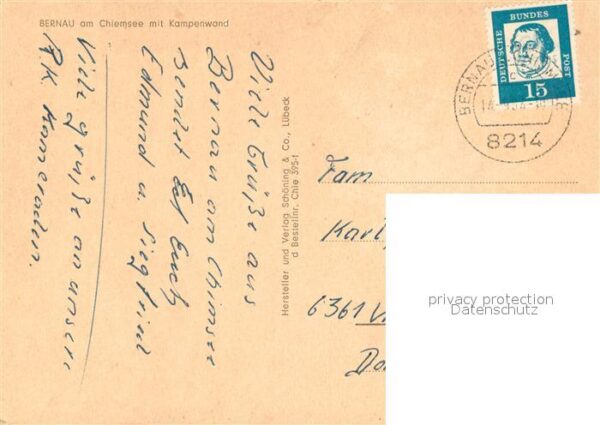 BERNAU am Chiemsee mit Kampenwand
Viele Grüße aus
Bernau am Chiemsee
sendet Euch
Edmund u. Siegfried
Viele grüße an unsere
R.K. Kameraden.
Hersteller und Verlag Schöning & Co., Lübeck
Bestellnr. Chie 395-f
DEUTSCHE BUNDESPOST
15
BERNAU
8214
Fam
Karl
6361
privacy protection
Datenschutz